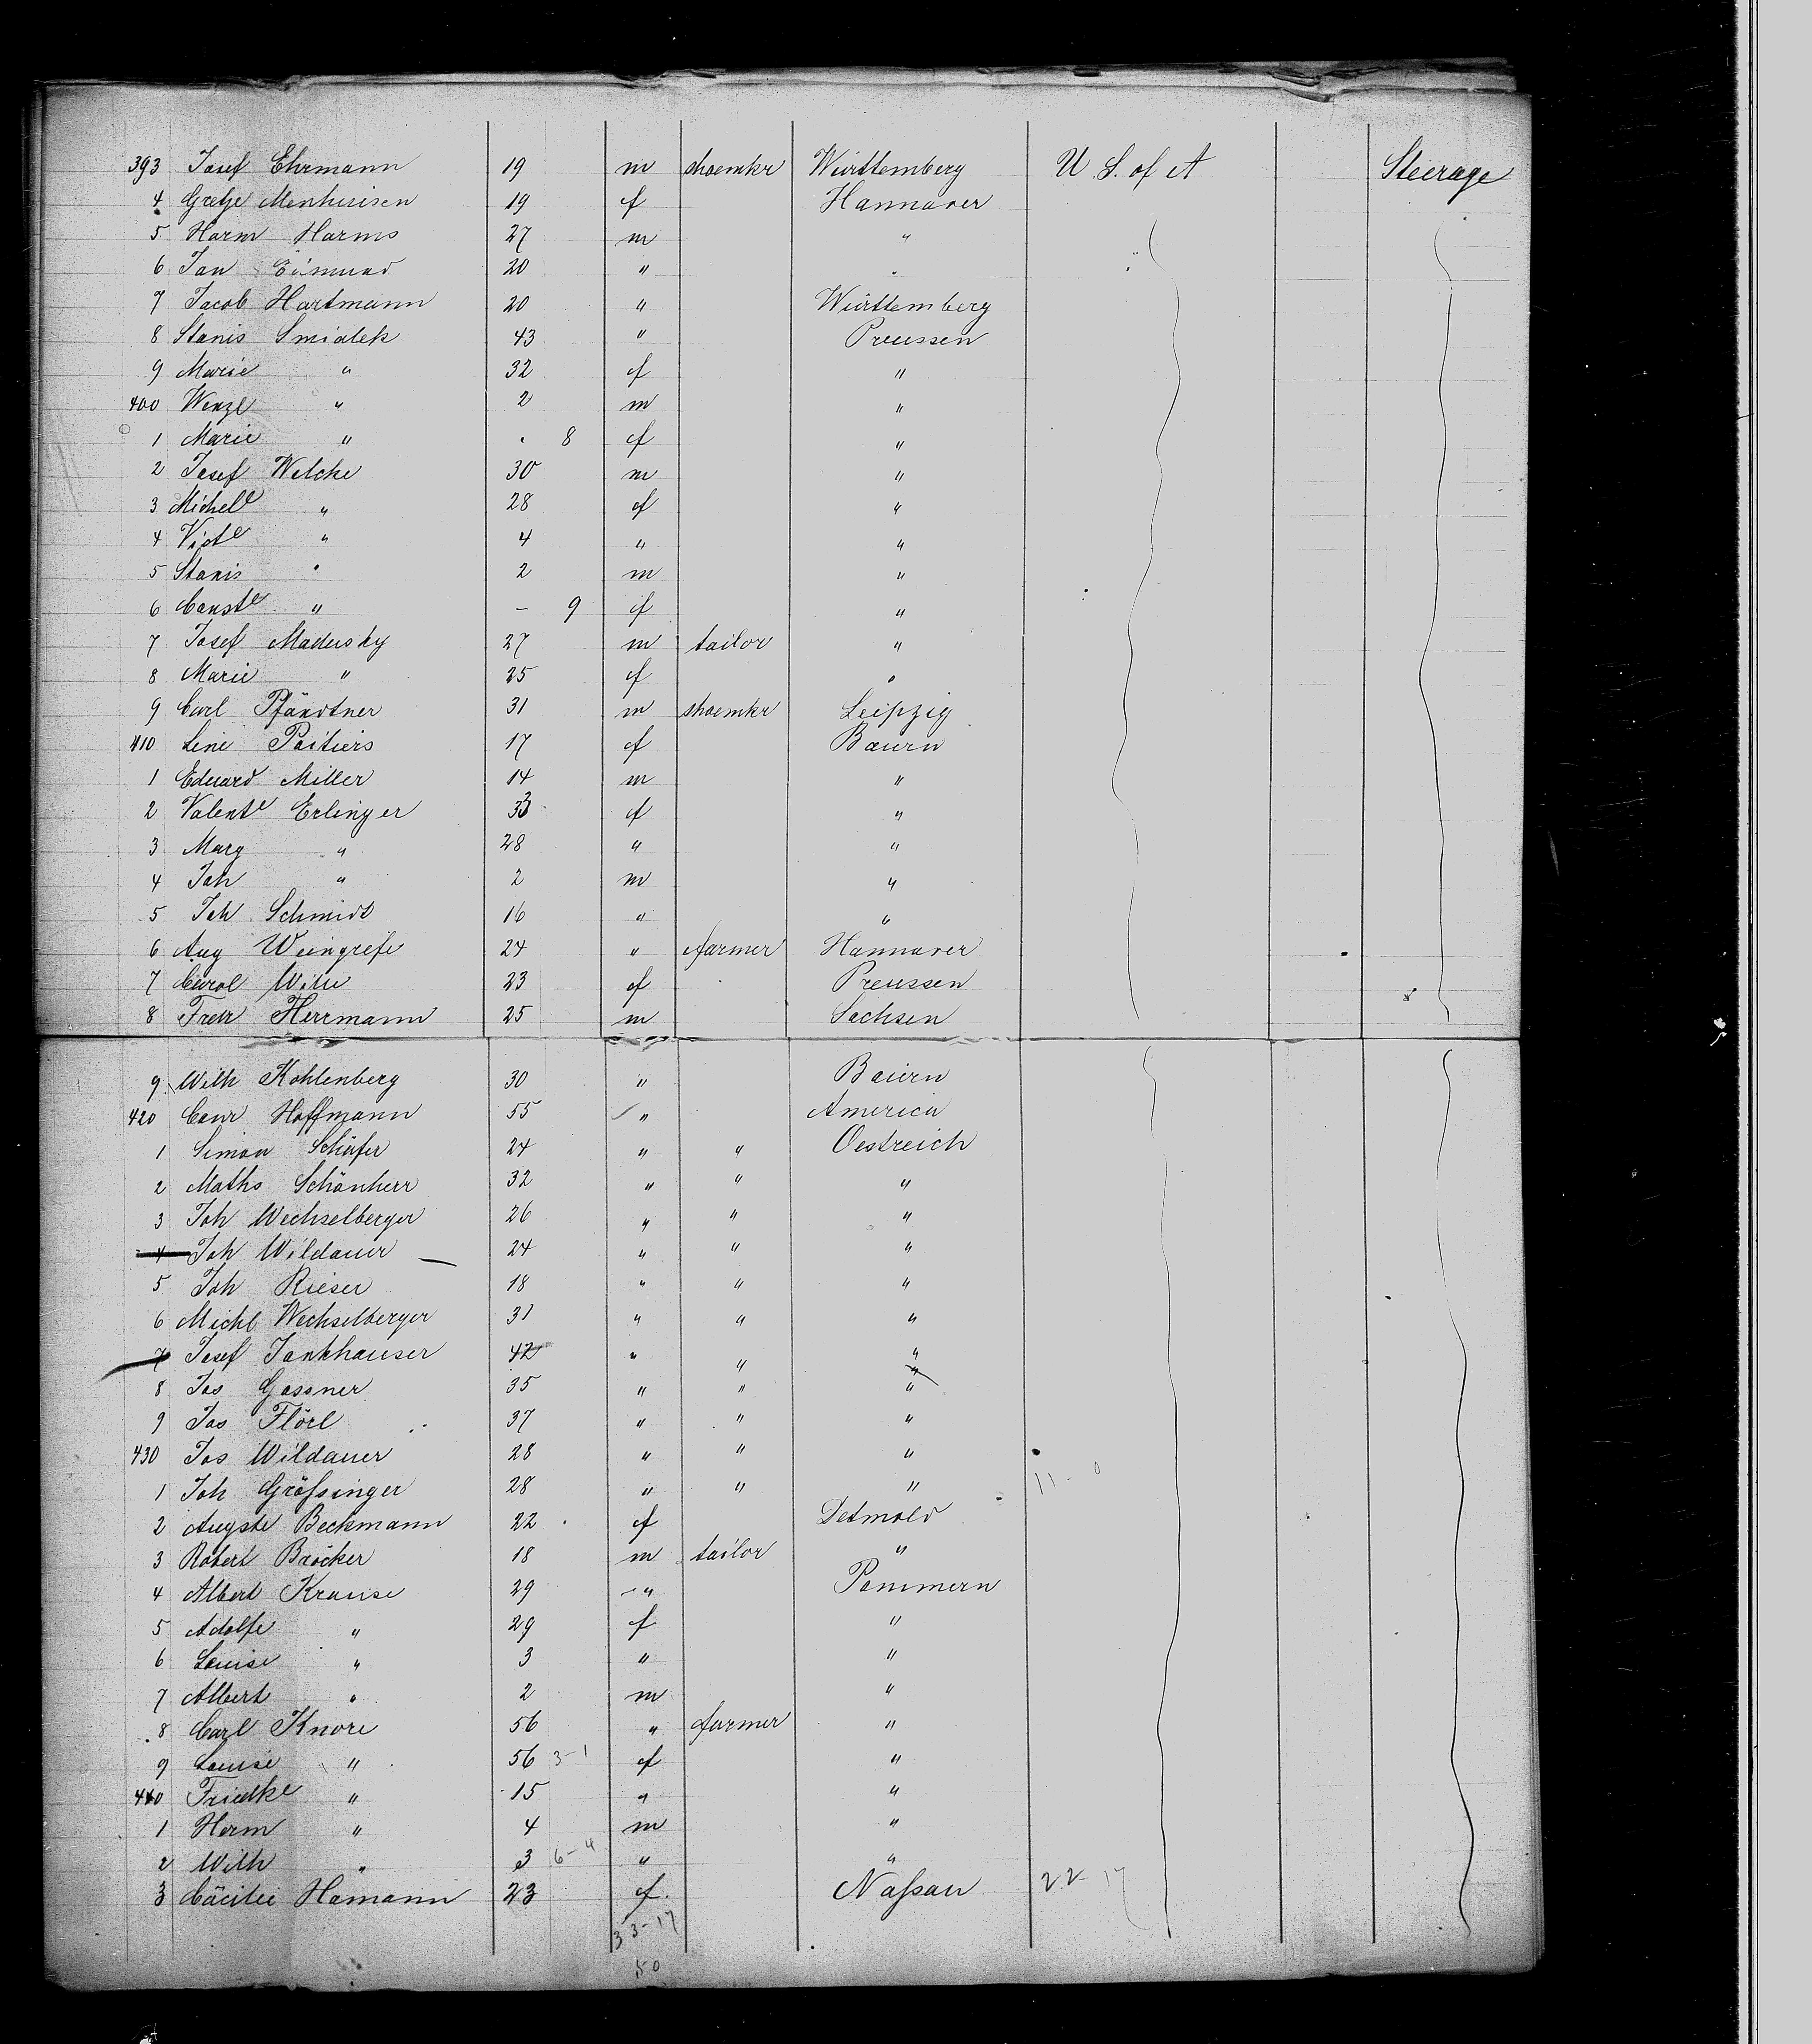 393 Josef Ehrmann 19 m shoemkr Württemberg U. S. of A Steerage
4 Gretje Menhuisen 19 f Hannover
5 Harm Harms 27 m "
6 Jan 20 " "
7 Jacob Hartmann 20 " Württemberg
8 Stanis Smialek 43 " Preussen
9 Marie " 32 f "
400 Wenzl " 2 m "
1 Marie " . 8 f "
2 Josef Welcke 30 m "
3 Michele " 28 f "
4 Victe " 4 " "
5 Stanis " 2 m "
6 Conste " – 9 f "
7 Josef Madusky 27 m tailor "
8 Marie " 25 f "
9 Carl Pfändtner 31 m shoemkr Leipzig
410 Line Poitiers 17 f Baiern
1 Eduard Miller 14 m "
2 Valente Erlinger 33 f "
3 Marg " 28 " "
4 Joh " 2 m "
5 Joh Schmidt 16 " "
6 Aug Weingrefe 24 " farmer Hannover
7 Carol 23 f Preussen
8 Herrmann 25 m Sachsen
9 Wilh Kohlenberg 30 " Baiern
420 Conr Hoffmann 55 " America
1 Simon Schäfer 24 " " Oestreich
2 Maths Schönherr 32 " " "
3 Joh Wechselberger 26 " " "
4 Joh Wildauer 24 " " "
5 Joh Rieser 18 " " "
6 Michl Wechselberger 31 " " "
7 Josef Jankhauser 42 " " "
8 Jos Gassner 35 " " "
9 Jos Flörl 37 " " "
430 Jos Wildauer 28 " " "
1 Joh Gröfsinger 28 " " " 11 - 0
2 Augste Beckmann 22 f Detmold
3 Robert Bröcker 18 m tailor "
4 Albert Krause 29 " Pommern
5 Adolfe " 29 f "
6 Louise " 3 " "
7 Albert " 2 m "
8 Carl Knore 56 " farmer "
9 Louise " 56 3-1 f "
440 Friedke " 15 " "
1 Herm " 4 m "
2 Wilh " 3 6-4 " "
3 Cäcilie Hamann 23 f Nafsau 22 17
33-17
50